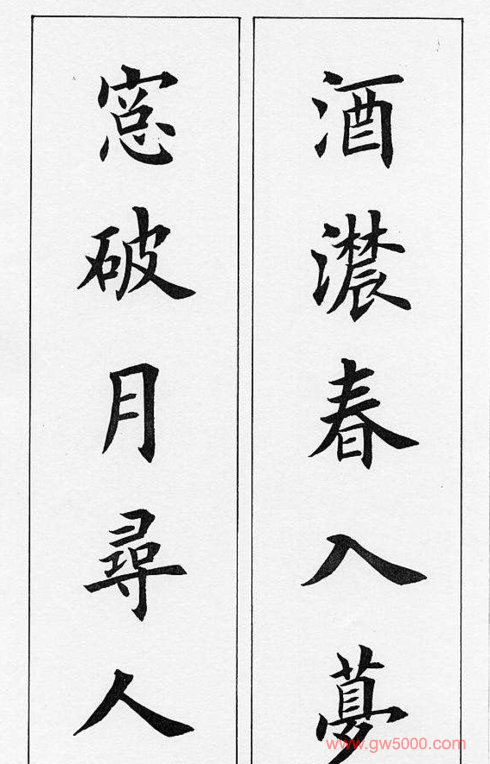 酒濃春入夢
窓破月尋人
www.gw5000.com